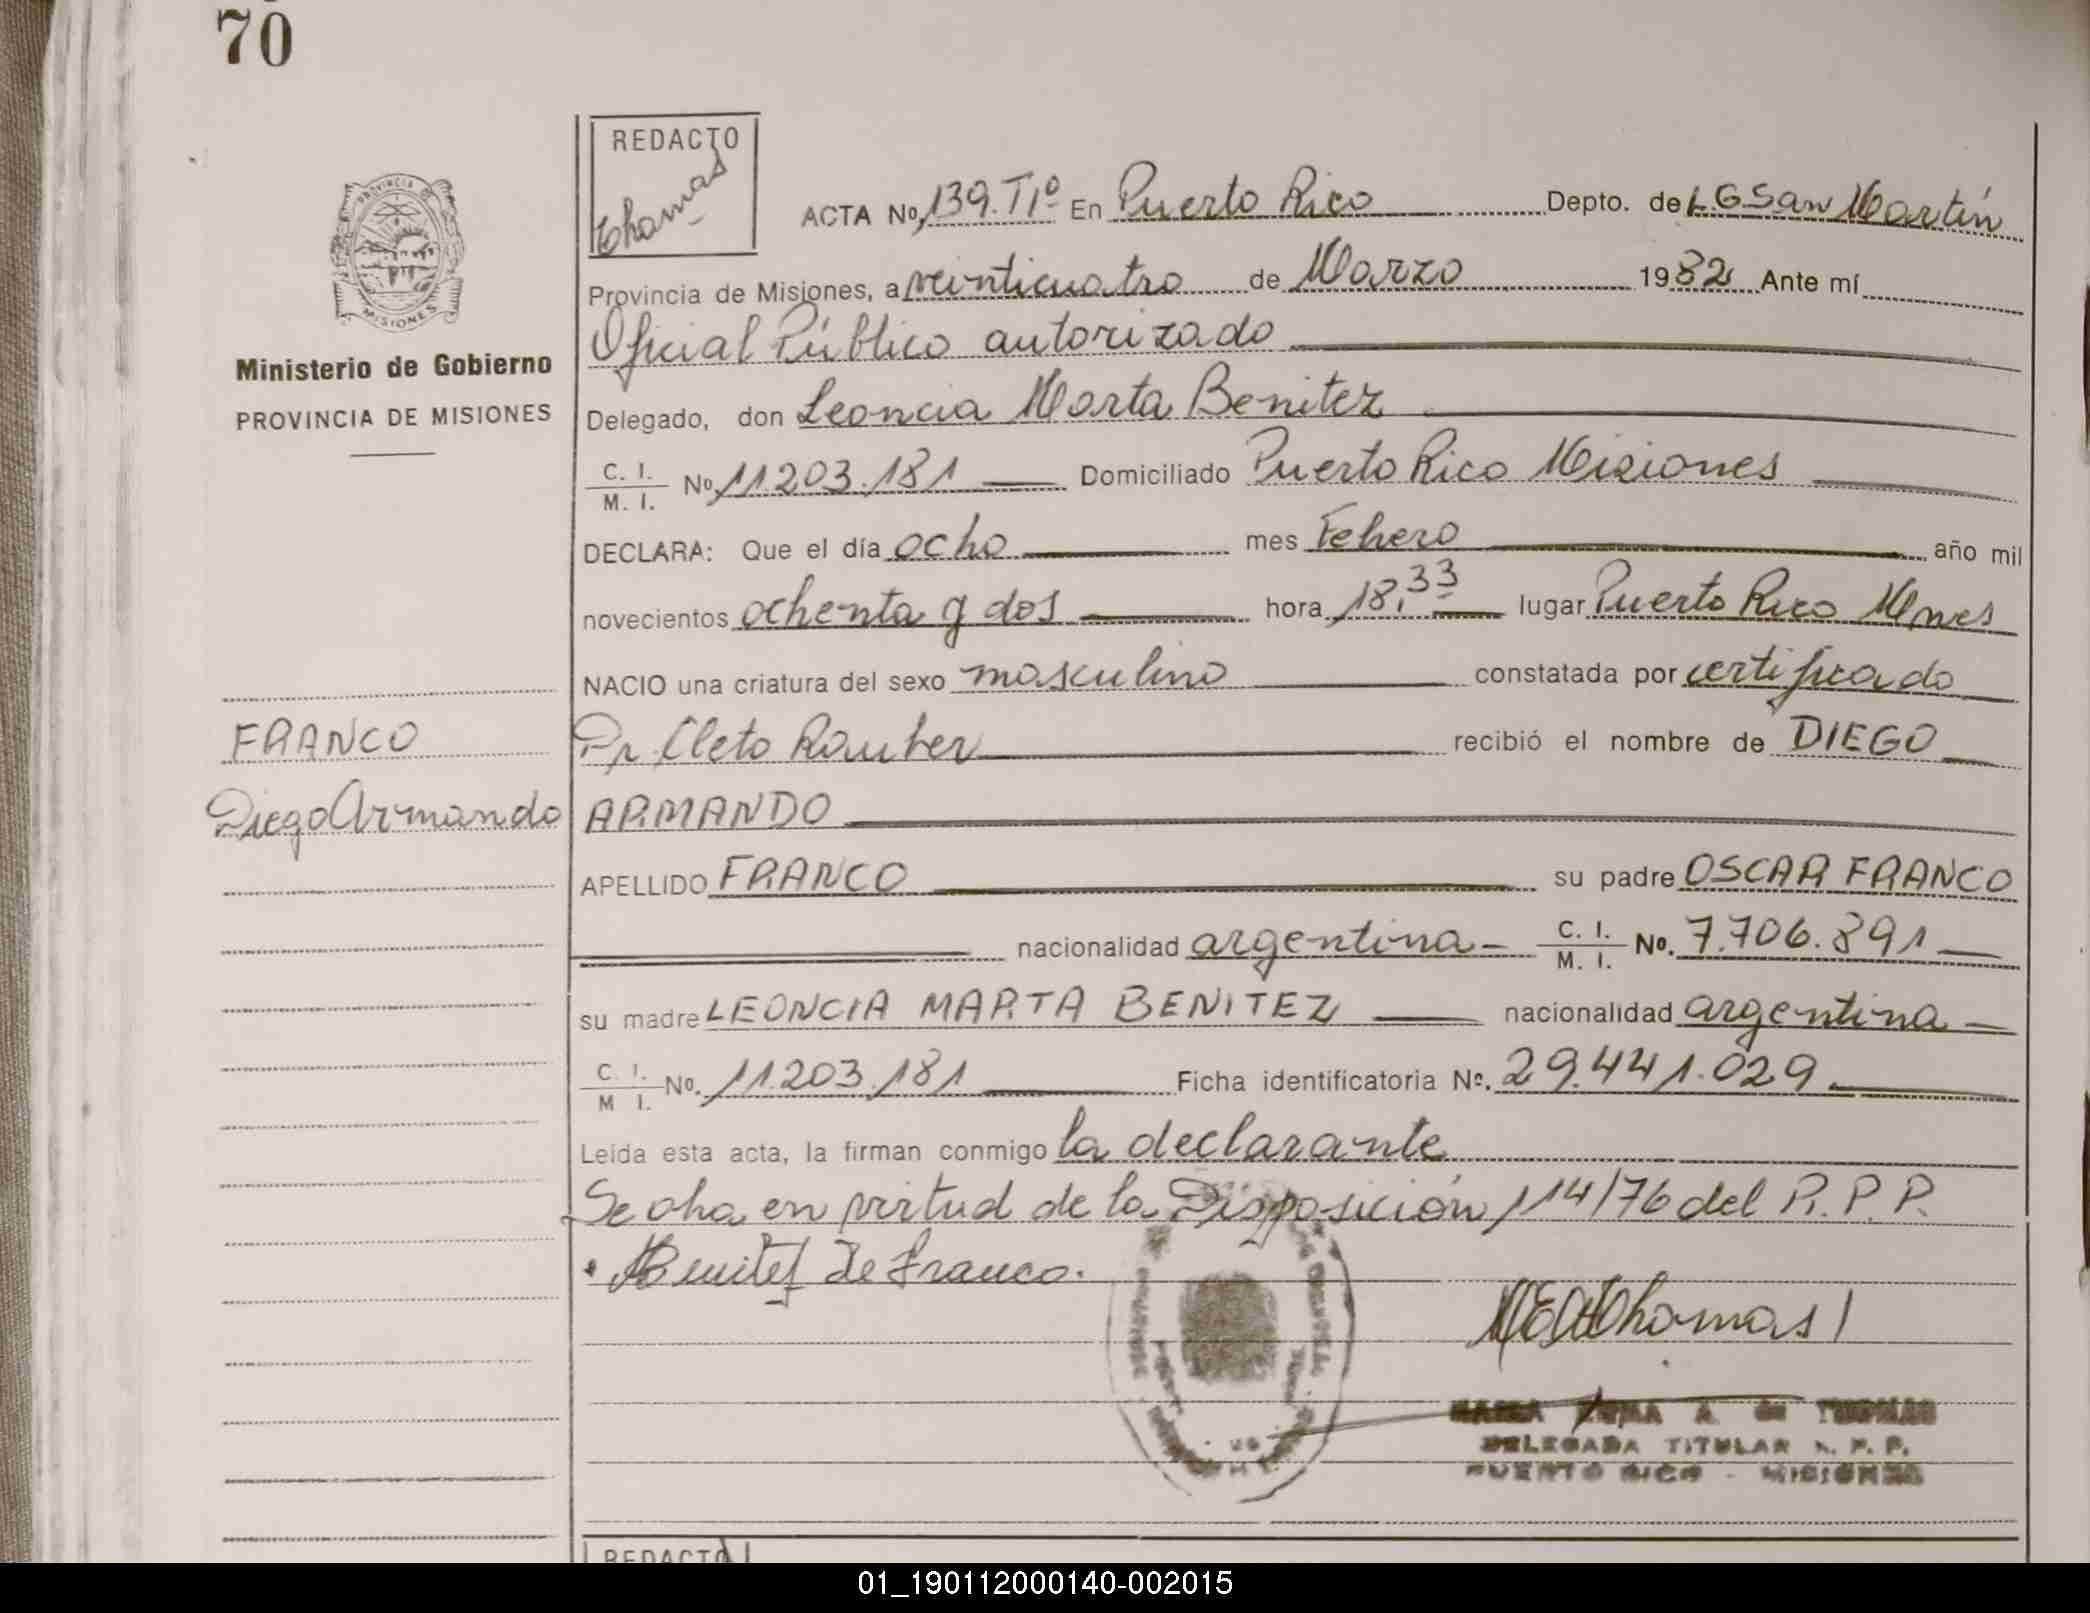 70
REDACTO
Thomas
ACTA No, 139. TIº En Puerto Rico Depto. de L.G San Martín
Provincia de Misiones, a veinticuatro de Marzo 1982 Ante mí
Oficial Público autorizado
Delegado, don Leoncia Marta Benitez
C. I.
M. I. No 11.203.181 Domiciliado Puerto Rico Misiones
DECLARA: Que el día ocho mes Febrero año mil
novecientos ochenta y dos hora 18,33 lugar Puerto Rico Mnes
NACIO una criatura del sexo masculino constatada por certificado
Dr Cleto Rauber recibió el nombre de DIEGO
ARMANDO
APELLIDO FRANCO su padre OSCAR FRANCO
nacionalidad argentina C. I.
M. I. No. 7.706.891
su madre LEONCIA MARTA BENITEZ nacionalidad argentina
C. I.
M I. No. 11.203.181 Ficha identificatoria Nº. 29.441.029
Leída esta acta, la firman conmigo la declarante
Se en virtud de la Disposición 114/76 del R. P. P.
Benitez de Franco.
Thomas
MARIA A. de THOMAS
DELEGADA TITULAR R. P. P.
PUERTO RICO - MISIONES
PROVINCIA DE
MISIONES
Ministerio de Gobierno
PROVINCIA DE MISIONES
FRANCO
Diego Armando
REDACTO
01_190112000140-002015